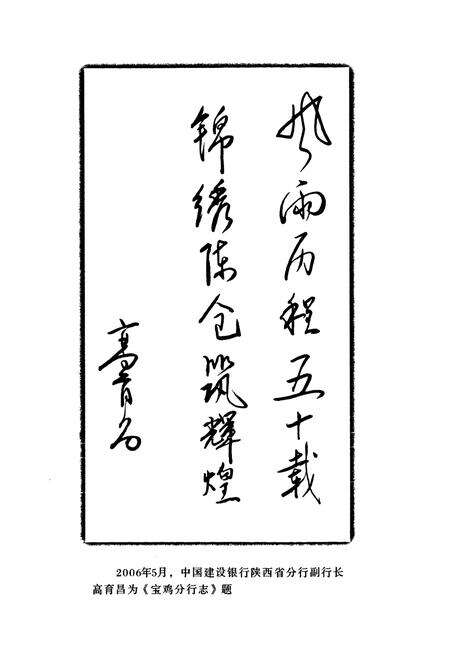 风雨历程五十载
锦绣陈仓筑辉煌
高育昌
2006年5月，中国建设银行陕西省分行副行长
高育昌为《宝鸡分行志》题